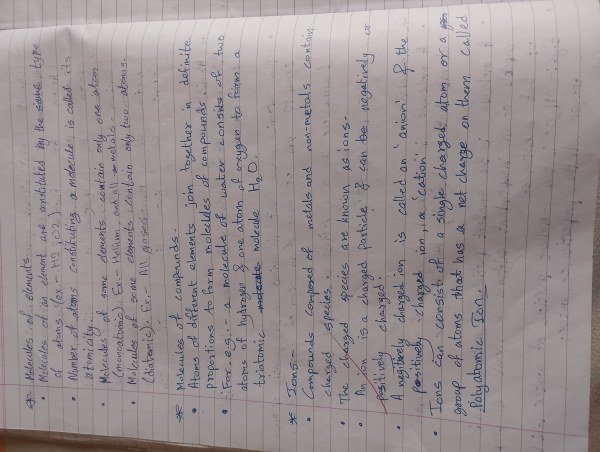 * Molecules of elements.
• Molecules of an element are constituted by the same type
of atoms (ex:- H2, O2).
• Number of atoms constituting a molecule is called its
atomicity.
• Molecules of some elements contain only one atom
(monoatomic). Ex.- Helium and all metals.
• Molecules of some elements contain only two atoms.
(diatomic). Ex.- All gases.
* Molecules of compounds.
• Atoms of different elements join together in definite
proportions to form molecules of compounds.
• For e.g.:- a molecule of water consists of two
atoms of hydrogen & one atom of oxygen to form a
triatomic molecule H2O.
* Ions.-
• Compounds composed of metals and non-metals contain
charged species.
• The charged species are known as ions.
• An ion is a charged particle & can be negatively or
positively charged.
• A negitively charged on is called an 'anion' & the
positively charged ion, a 'cation'.
• Ions can consists of a single charged atom or a
group of atoms that has a net charge on them called
Polyatomic Ion.